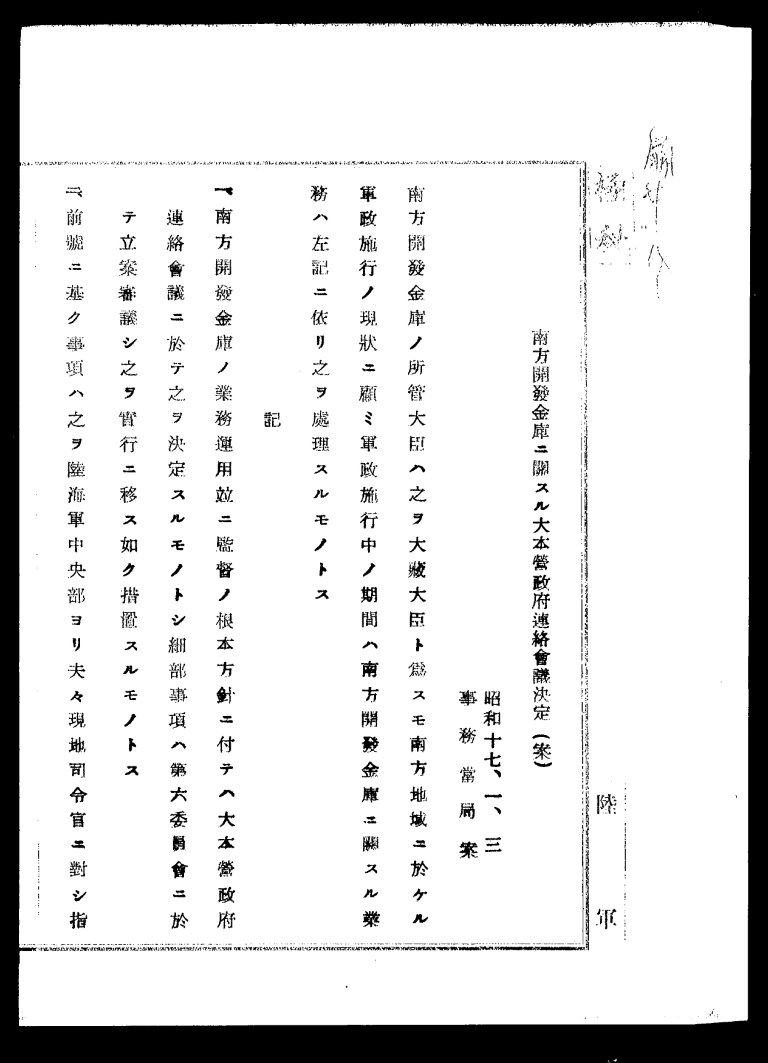 陸軍
南方開發金庫ニ關スル大本營政府連絡會議決定(案)
昭和十七、一、三
事務當局案
南方開發金庫ノ所管大臣ハ之ヲ大藏大臣ト爲スモ南方地域ニ於ケル
軍政施行ノ現狀ニ顧ミ軍政施行中ノ期間ハ南方開發金庫ニ關スル業
務ハ左記ニ依リ之ヲ處理スルモノトス
記
一、南方開發金庫ノ業務運用竝ニ監督ノ根本方針ニ付テハ大本營政府
連絡會議ニ於テ之ヲ決定スルモノトシ細部事項ハ第六委員會ニ於
テ立案審議シ之ヲ實行ニ移ス如ク措置スルモノトス
二、前號ニ基ク事項ハ之ヲ陸海軍中央部ヨリ夫々現地司令官ニ對シ指